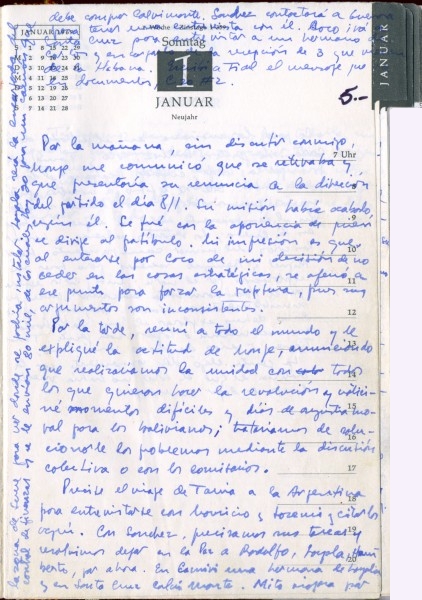 debe comprar Calvimonte. Sanchez contactará a Guevara
para tener una entrevista con él. Coco irá
a Santa Cruz para entrevistar a un hermano de
y encargarle la recepción de 3 que vienen
de la Habana. a Fidel el mensaje por
documentos, CZO #2.
JANUAR 1967
Sonntag
1
JANUAR
Neujahr
JANUAR
5.-
Por la mañana, sin discutir conmigo,
7 Uhr
Monje me comunicó que se retiraba y
que presentaría su renuncia a la dirección
del partido el día 8/1. Su misión había acabado,
según él. Se fué con la apariencia de quien
se dirige al patíbulo. Mi impresión es que
al enterarse por Coco de mi decisión de no
ceder en las cosas estratégicas, se aferró a
ese punto para forzar la ruptura, pues sus
argumentos son inconsistentes.
Por la tarde, reuní a todo el mundo y le
expliqué la actitud de Monje, anunciando
que realizaríamos la unidad con todos
los que quieran hacer la revolución y vatici-
né momentos difíciles y días de angustia mo-
ral para los bolivianos; trataríamos de solu-
cionarle los problemas mediante la discusión
colectiva o con los comisarios.
Precisé el viaje de Tania a la Argentina
para entrevistarse con Mauricio y Jozami y citarlos
aquí. Con Sanchez, precisamos sus tareas y
resolvimos dejar en La Paz a Rodolfo, Loyola, Hum-
berto, por ahora. En Camiri una hermana de Loyola
y en Santa Cruz Calvimonte. Mito viajará por
la zona de Sucre para ver donde se podría instalar. Loyola será la encargada del
control de finanzas y se le envían 80 mil, de los cuales hay 20 para un camión que
9
10
11
12
13
14
15
16
17
18
19
20